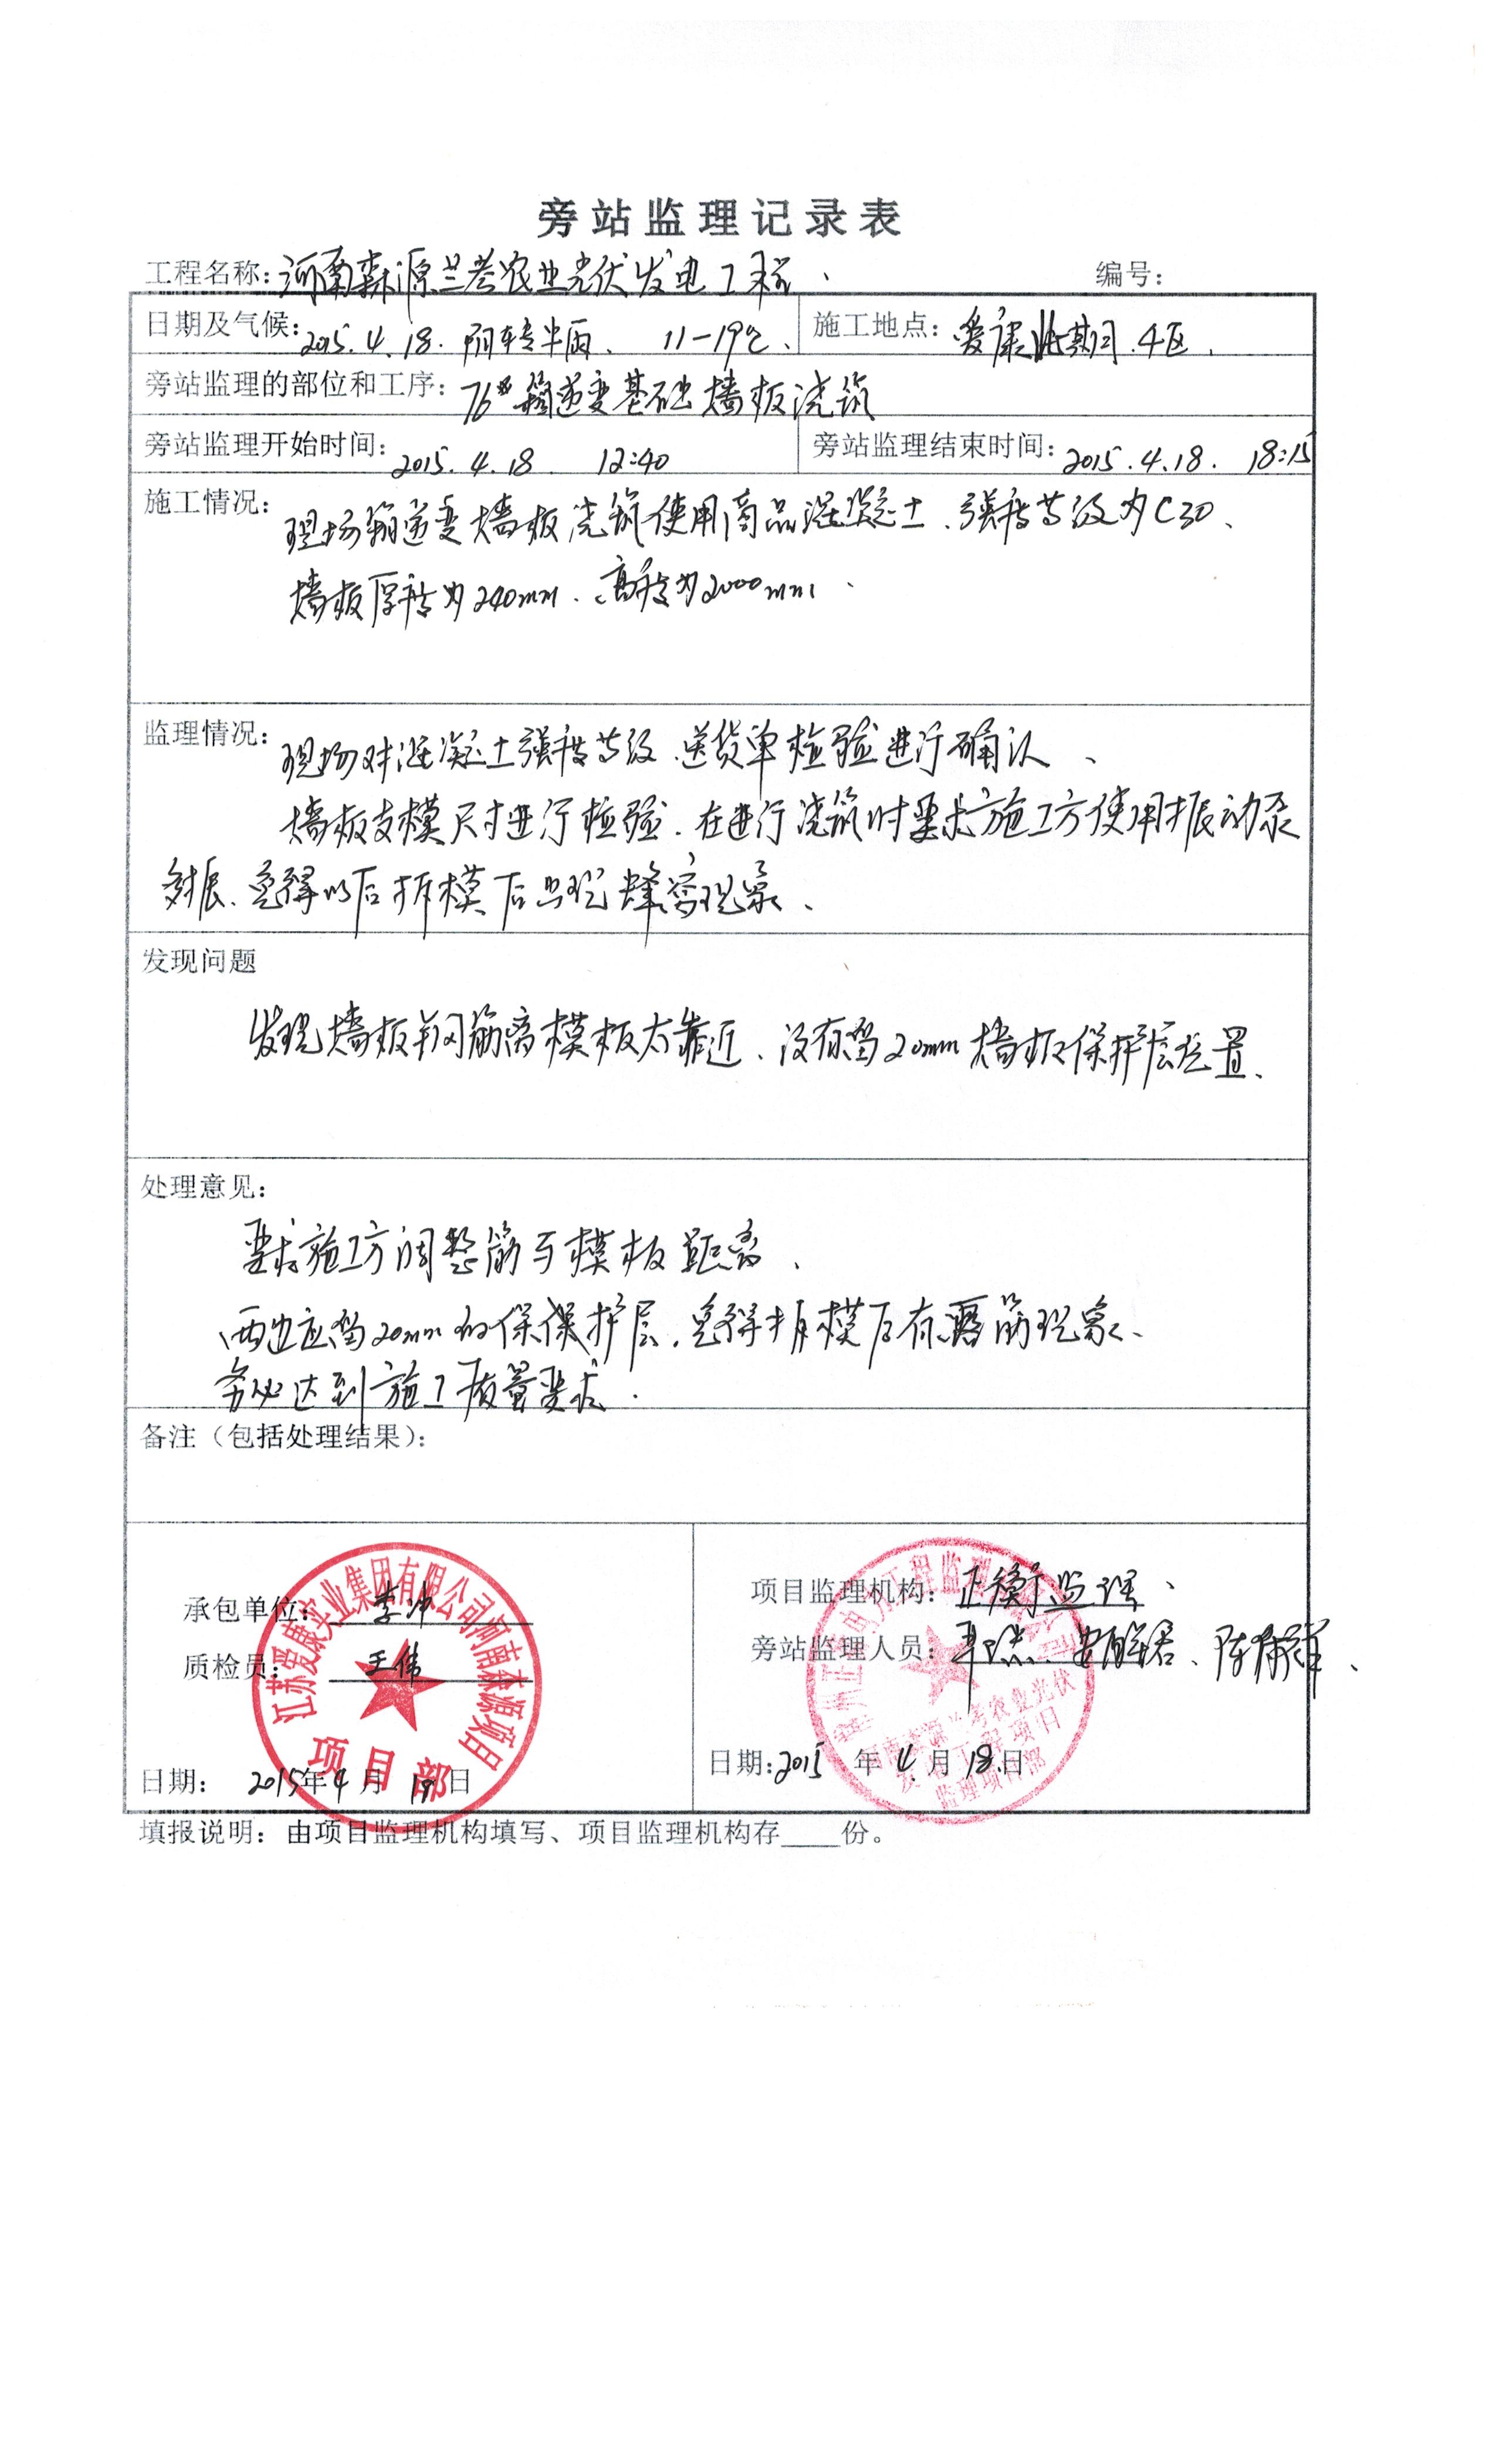 旁站监理记录表
工程名称:河南森源兰考农业光伏发电工程. 编号:
日期及气候:2015.4.18. 阴转半雨、 11-19℃. 施工地点:爱康 4区.
旁站监理的部位和工序:76#箱逆变基础墙板浇筑
旁站监理开始时间:2015.4.18 12:40 旁站监理结束时间:2015.4.18. 18:15
施工情况:现场箱逆变墙板浇筑使用商品混凝土、强度等级为C30、
墙板厚度为240mm、高度为2000mm.
监理情况:现场对混凝土强度等级、送货单检验进行确认、
墙板支模尺寸进行检验.在进行浇筑时要求施工方使用振动泵
多振、免得以后拆模后出现蜂窝现象、
发现问题
发现墙板钢筋离模板太靠近、没有留20mm墙板保护层位置、
处理意见:
要求施工方调整筋与模板距离、
两边应留20mm的保保护层.免得拆模后有露筋现象、
务必达到施工质量要求.
备注(包括处理结果):
承包单位:李冲 项目监理机构:正衡监理、
质检员:王伟 旁站监理人员:
江苏爱康实业集团有限公司河南森源项目
项目部
河南森源兰考农业光伏
发电工程项目
监理项目部
日期: 2015年4月19日 日期:2015年4月18日
填报说明:由项目监理机构填写、项目监理机构存____份。